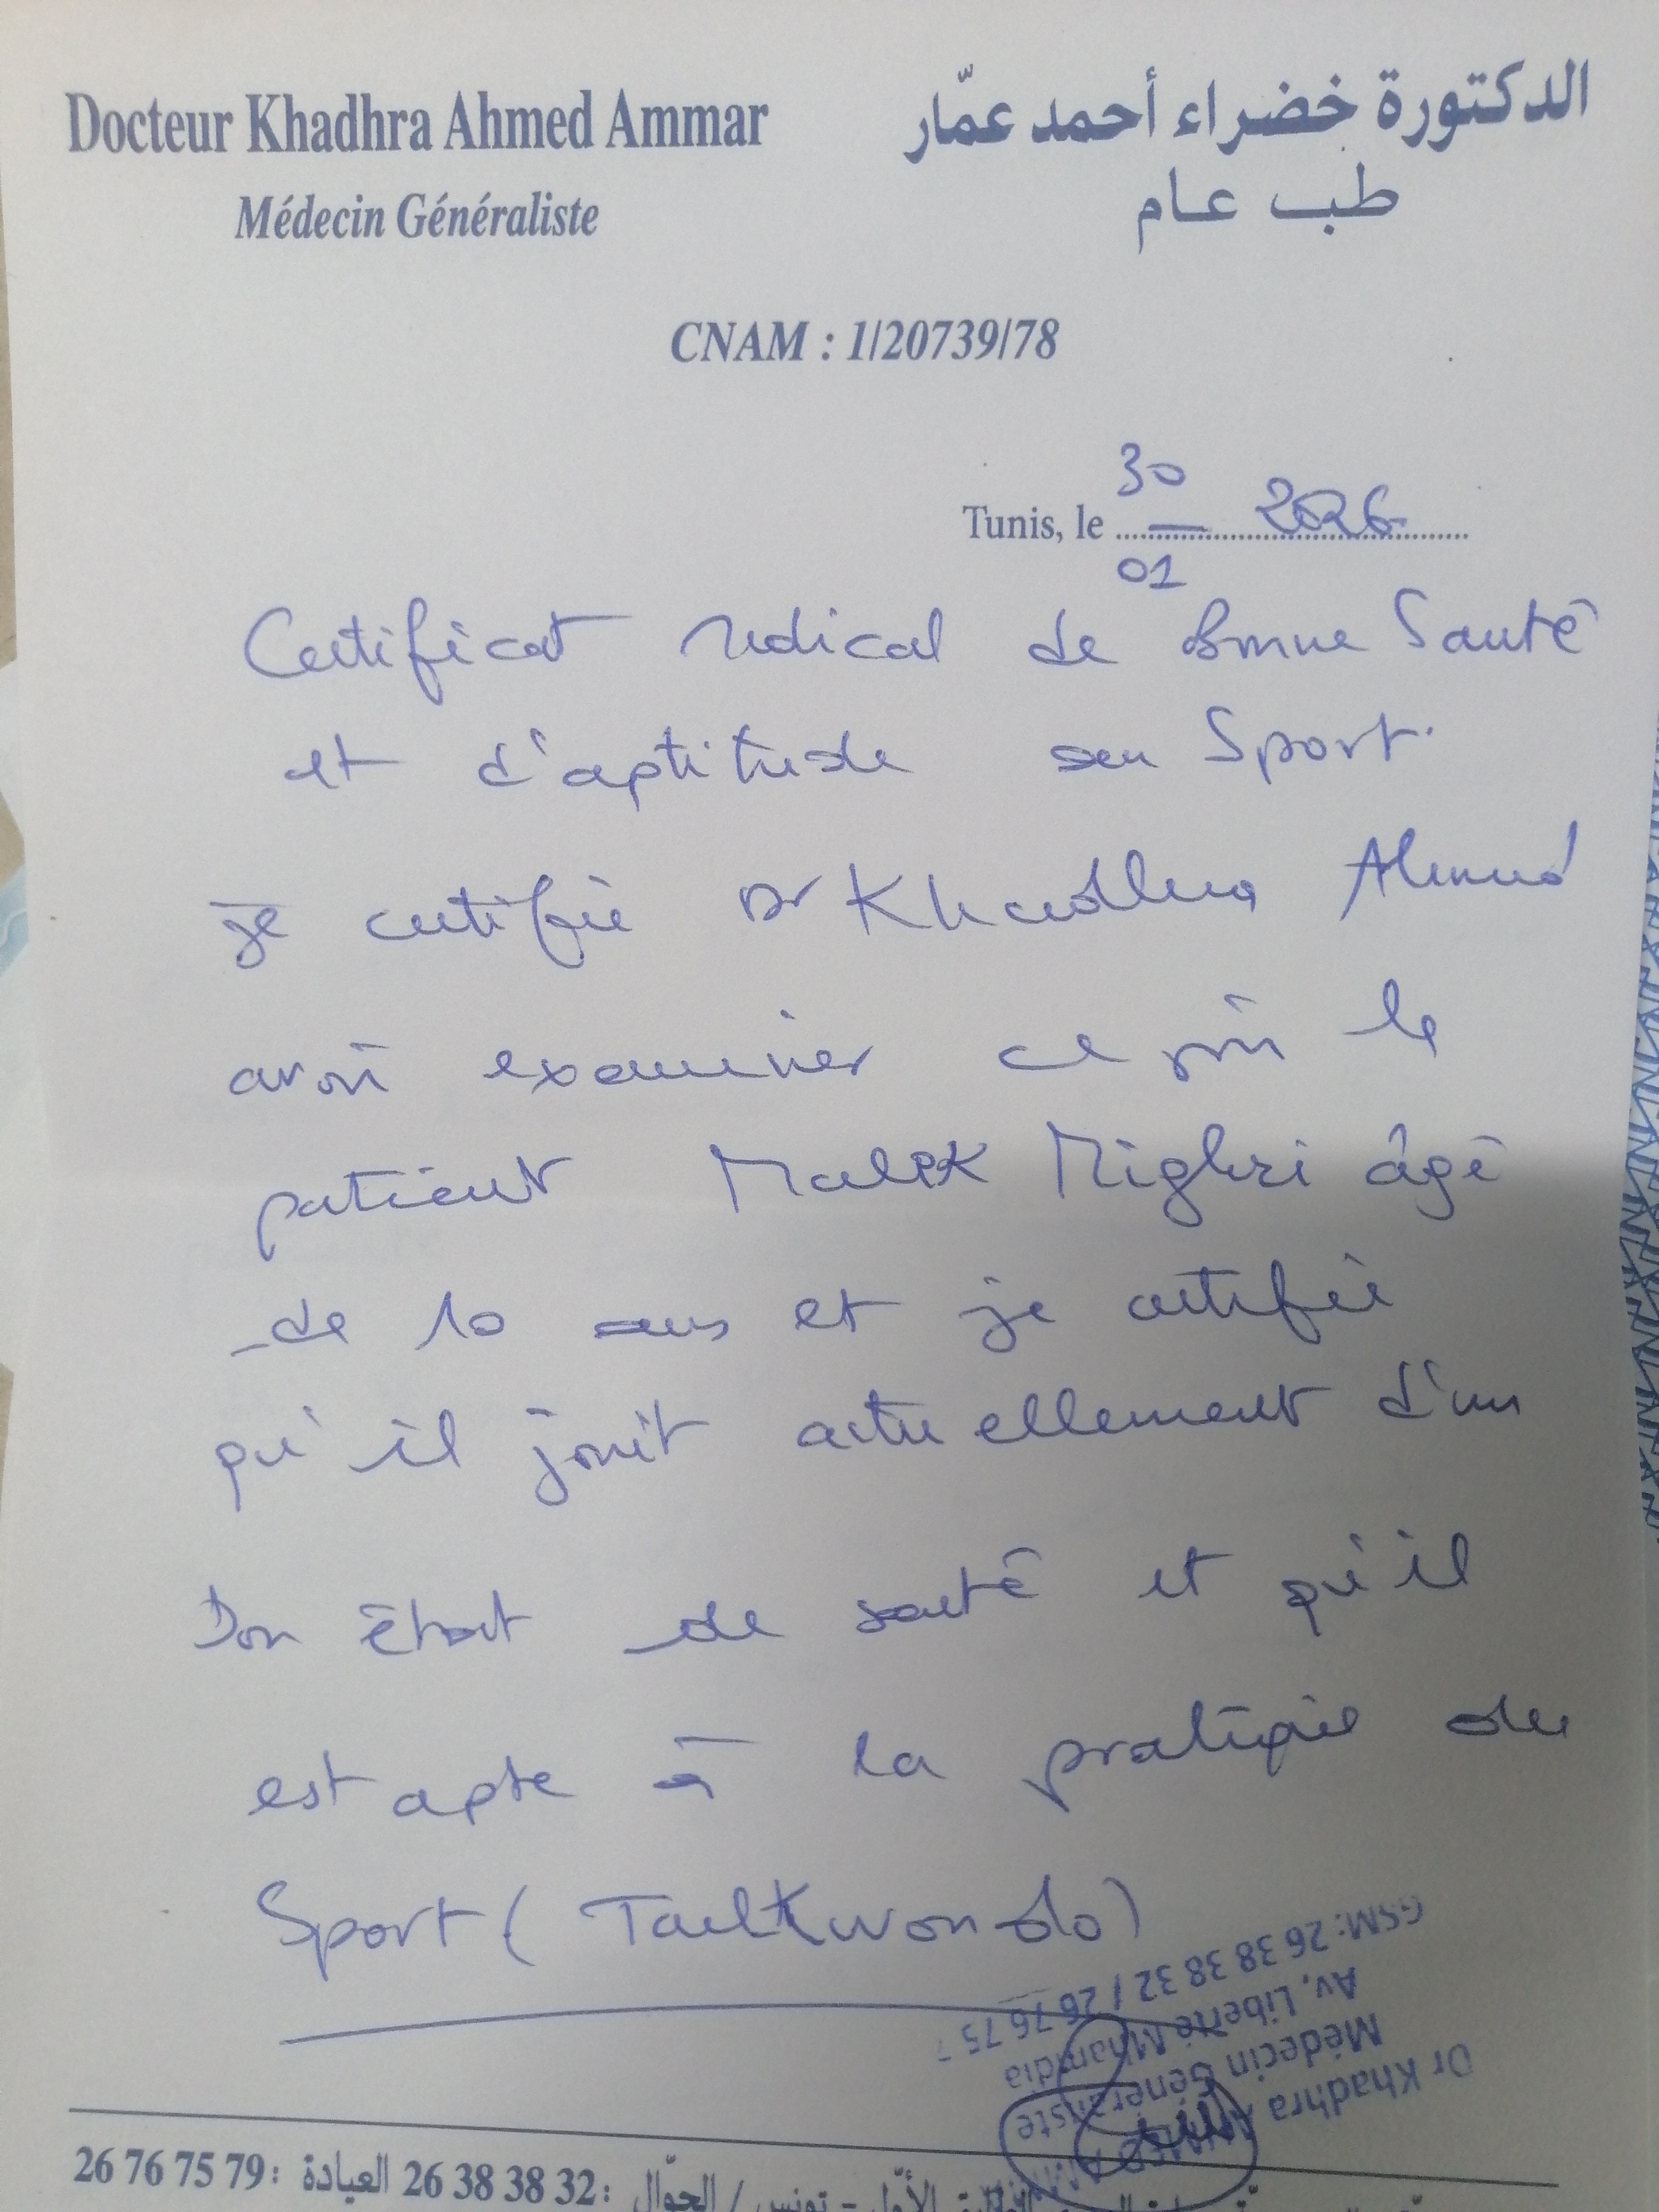 Docteur Khadhra Ahmed Ammar
الدكتورة خضراء أحمد عمّار
Médecin Généraliste
طب عام
CNAM : 1/20739/78
Tunis, le 30/01 2026
Certificat médical de Bonne Santé
et d'aptitude au Sport.
je certifie Dr Khadhra Ahmed
avoir examiner ce jour le
patient Malek Mighri âgé
de 10 ans et je certifie
qu'il jouit actuellement d'un
Bon état de santé et qu'il
est apte à la pratique du
Sport (Taekwondo)
GSM: 26 38 38 32 / 26 76 75
Av. Liberté Mhamdia
Médecin Généraliste
Dr Khadhra AHMED AMMAR
الأوّل - تونس / الجوّال : 32 38 38 26 العيادة : 79 75 76 26